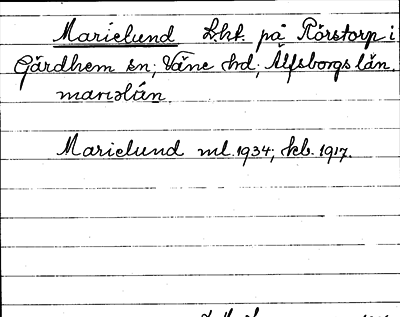 Marielund Lht. på Rörstorp i
Gärdhem sn; Väne hd; Älfsborgs län.
mariəlún.
Marielund ml. 1934; kb. 1917.